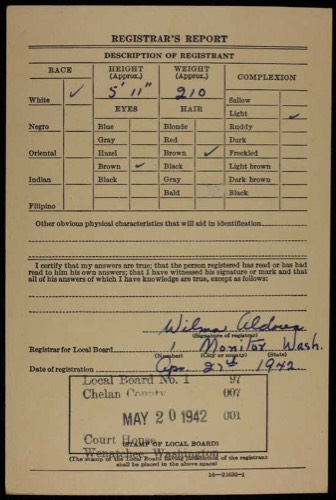 REGISTRAR'S REPORT
DESCRIPTION OF REGISTRANT
RACE HEIGHT (Approx.) WEIGHT (Approx.) COMPLEXION
5' 11" 210
White ✓ EYES HAIR Sallow
Light ✓
Negro Blue Blonde Ruddy
Gray Red Dark
Oriental Hazel Brown ✓ Freckled
Brown ✓ Black Light brown
Indian Black Gray Dark brown
Bald Black
Filipino
Other obvious physical characteristics that will aid in identification
I certify that my answers are true; that the person registered has read or has had
read to him his own answers; that I have witnessed his signature or mark and that
all of his answers of which I have knowledge are true, except as follows:
Wilma
(Signature of registrar)
Registrar for Local Board 1 Monitor Wash.
(Number) (City or county) (State)
Date of registration Apr. 27th 1942
Local Board No. 1 97
Chelan County 007
MAY 20 1942 001
Court House
(STAMP OF LOCAL BOARD)
Wenatchee, Washington
(The stamp of the Local Board having jurisdiction of the registrant
shall be placed in the above space)